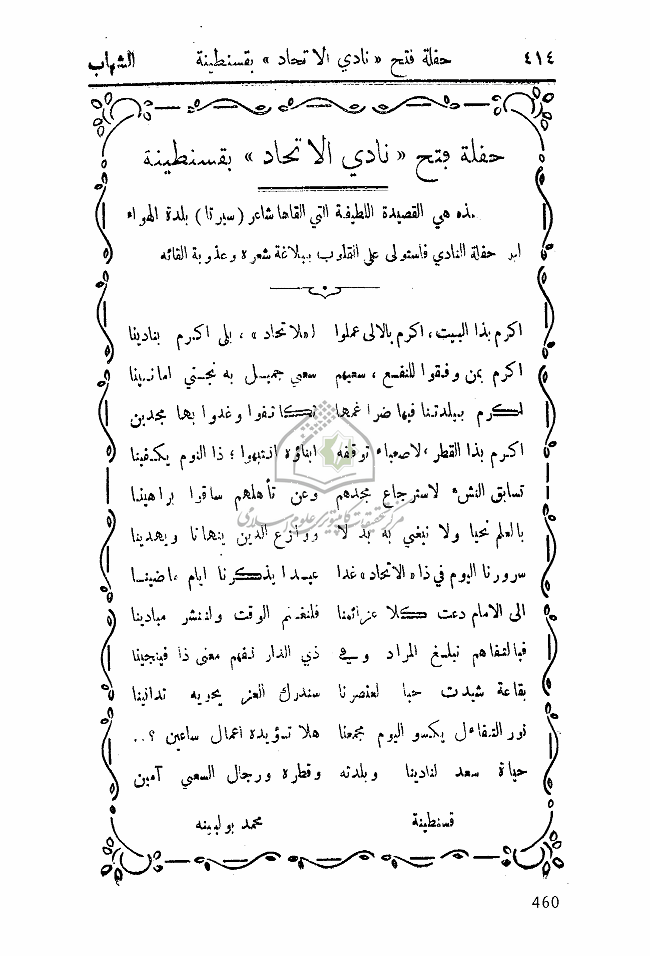 ٤١٤ حفلة فتح « نادي الاتحاد » بقسنطينة الشهاب
حفلة فتح « نادي الاتحاد » بقسنطينة
هذه هي القصيدة اللطيفة التي القاها شاعر ( سيرتا ) بلدة الهواء
حفلة النادي فاستولى على القلوب ببلاغة شعره وعذوبة القائه
اكرم بذا البيت ، اكرم بالالى عملوا لـ«لاتحاد» ، بلى اكرم بنادينا
اكرم بمن وفقوا للنفع ، سعيهم سعي جميل به نجني امانينا
ببلدتنا فيها ضراغمها تكاتفوا وغدوا بها مجدين
اكرم بذا القطر ، توقفه ابناؤه انتبهوا ؛ ذا النوم يكفينا
تسابق النشء لاسترجاع مجدهم وعن تأهلهم ساقوا براهينا
بالعلم نحيا ولا نبغي به بدلا ووازع الدين ينهانا ويهدينا
سرورنا اليوم في ذا «الاتحاد» غدا عيدا يذكرنا ايام ماضينا
الى الامام دعت كلا عزائمنا فلنغنم الوقت ولننشر مبادينا
فبالتفاهم نبلغ المراد وفي ذي الدار نفهم معنى ذا فينجينا
بقاعة شيدت حبا لعنصرنا سندرك العز يحويه تدانينا
نور التفاءل يكسو اليوم مجمعنا هلا تؤيده اعمال ساعين ؟..
حياة سعد لنادينا وبلدته وقطره ورجال السعي آمين
قسنطينة محمد بولبينه
مركز تحقيقات كامپيوترى علوم اسلامى
460